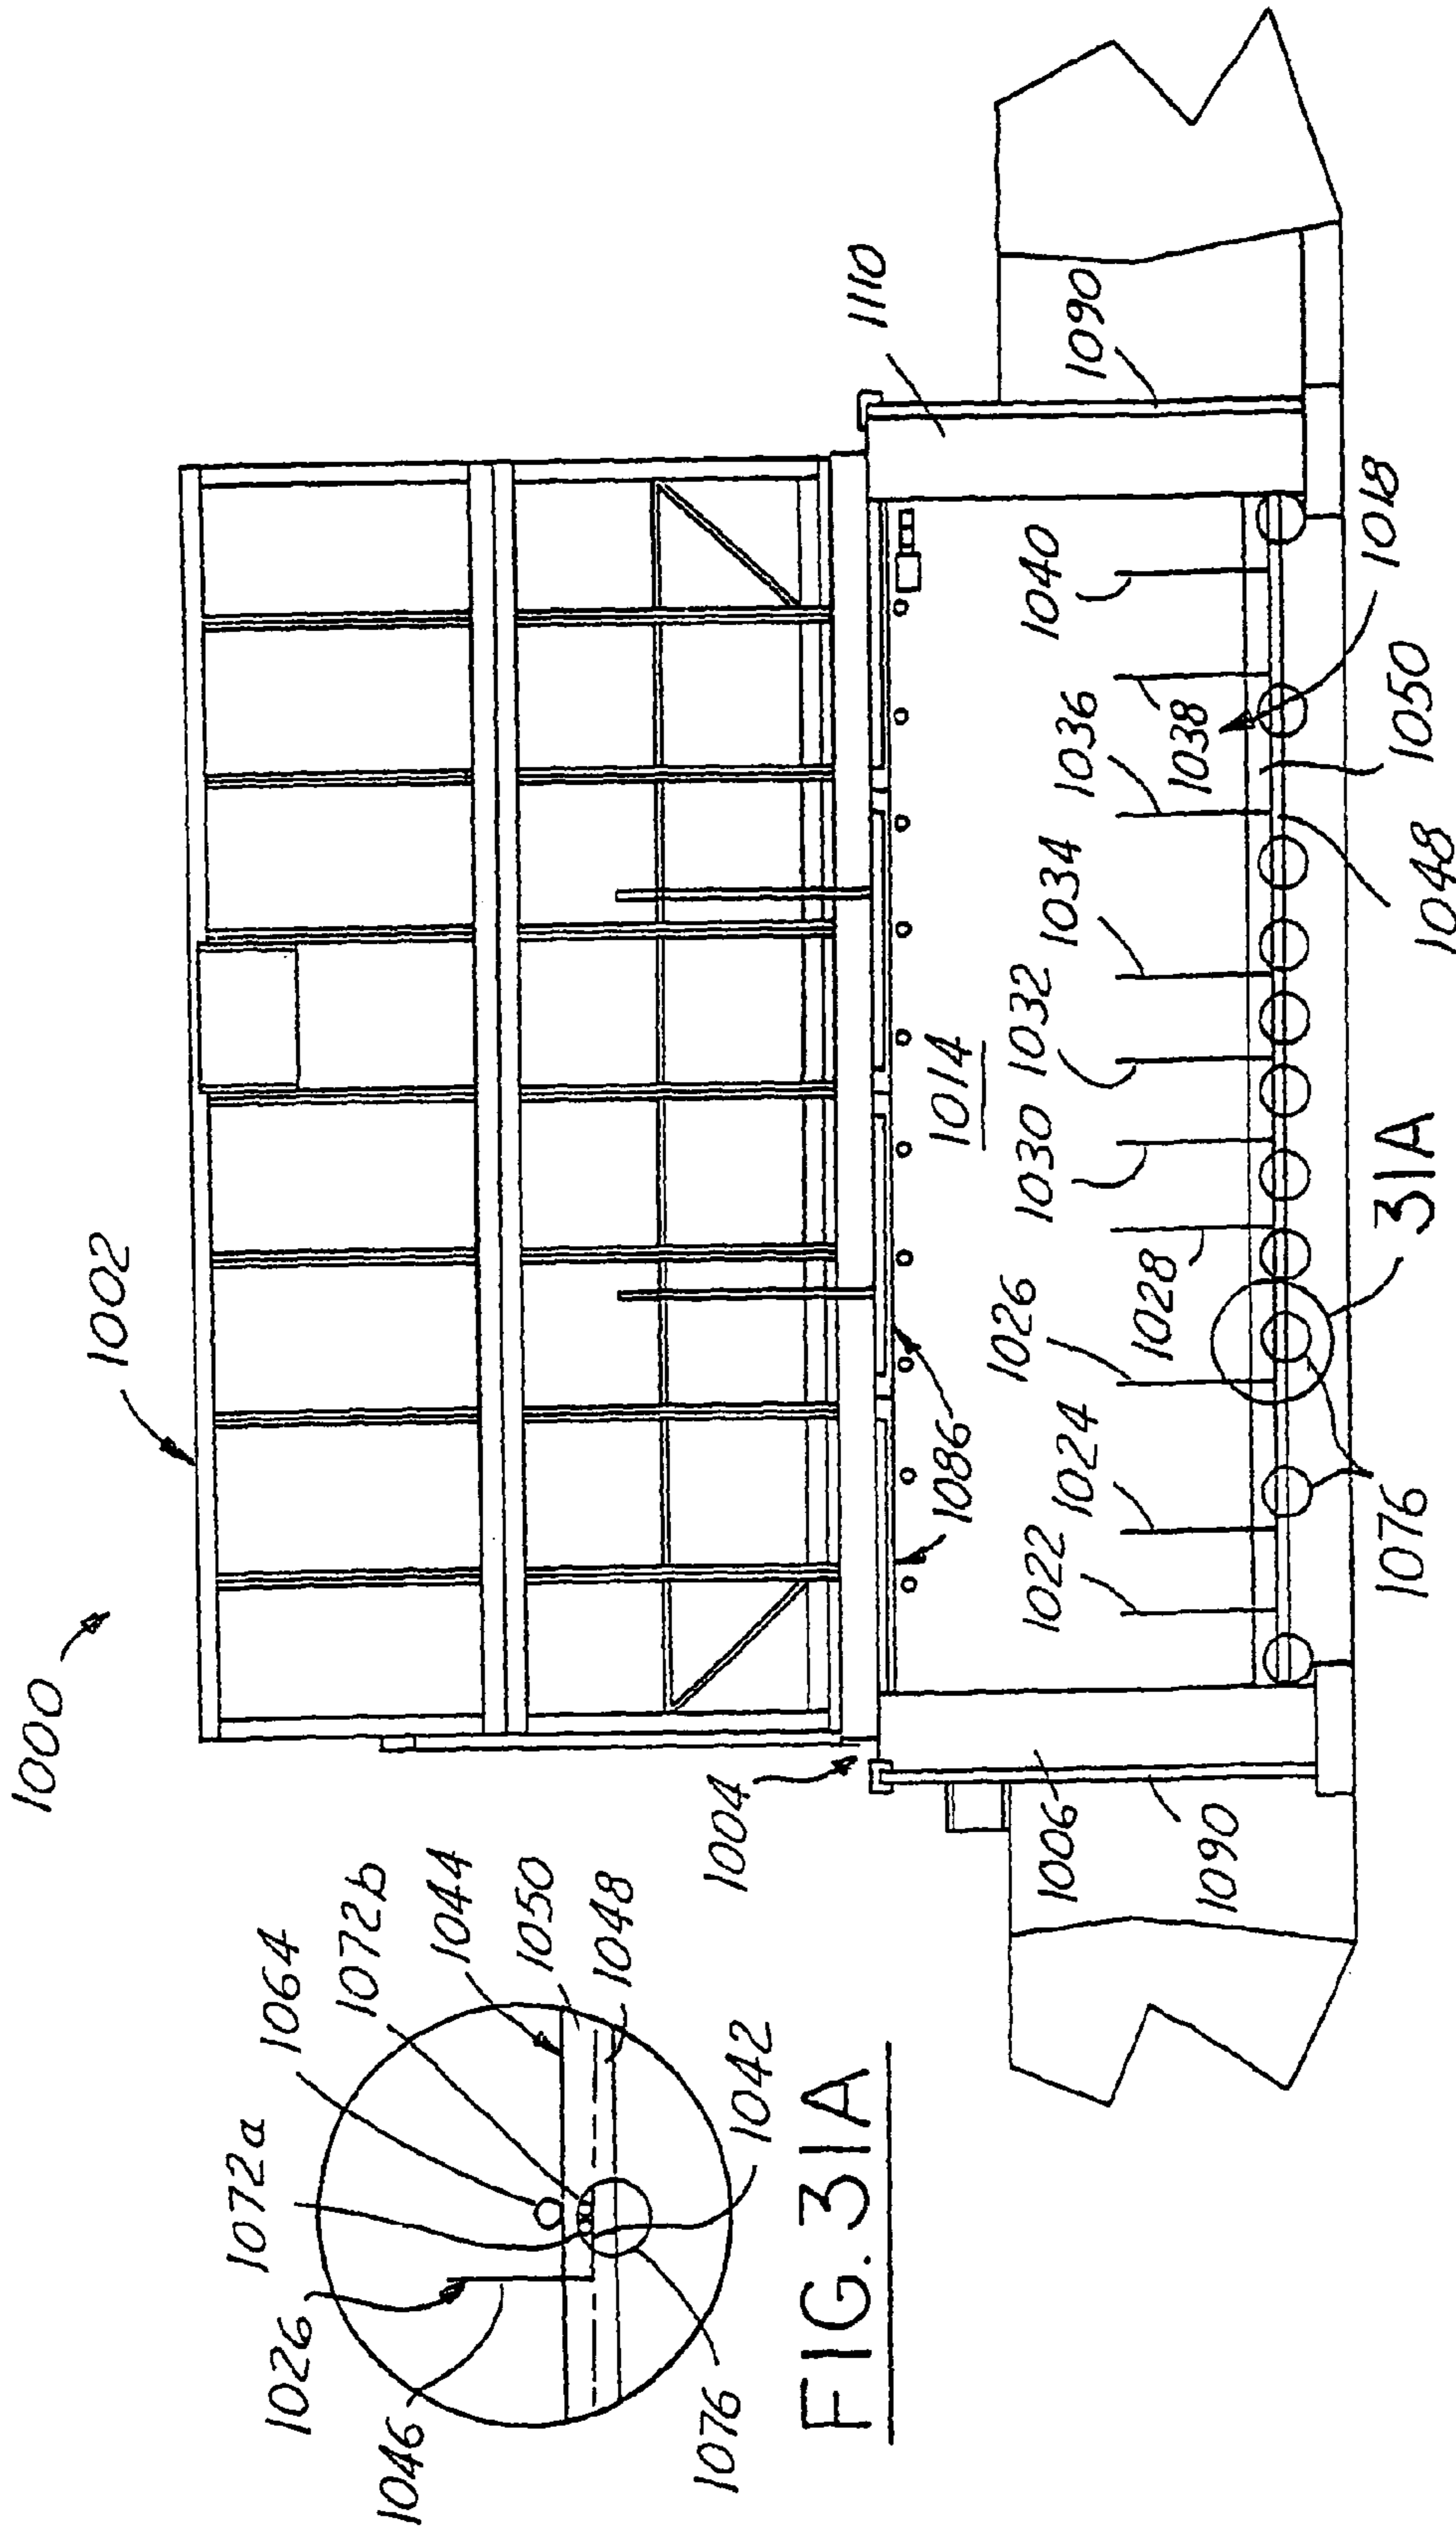 1000
1002
1004
1006
1090
1086
1014
1110
1090
1022
1024
1026
1028
1030
1032
1034
1036
1038
1040
1018
1050
1048
31A
1076
1026
1072a
1064
1072b
1044
1050
1048
1042
1046
1076
FIG. 31A